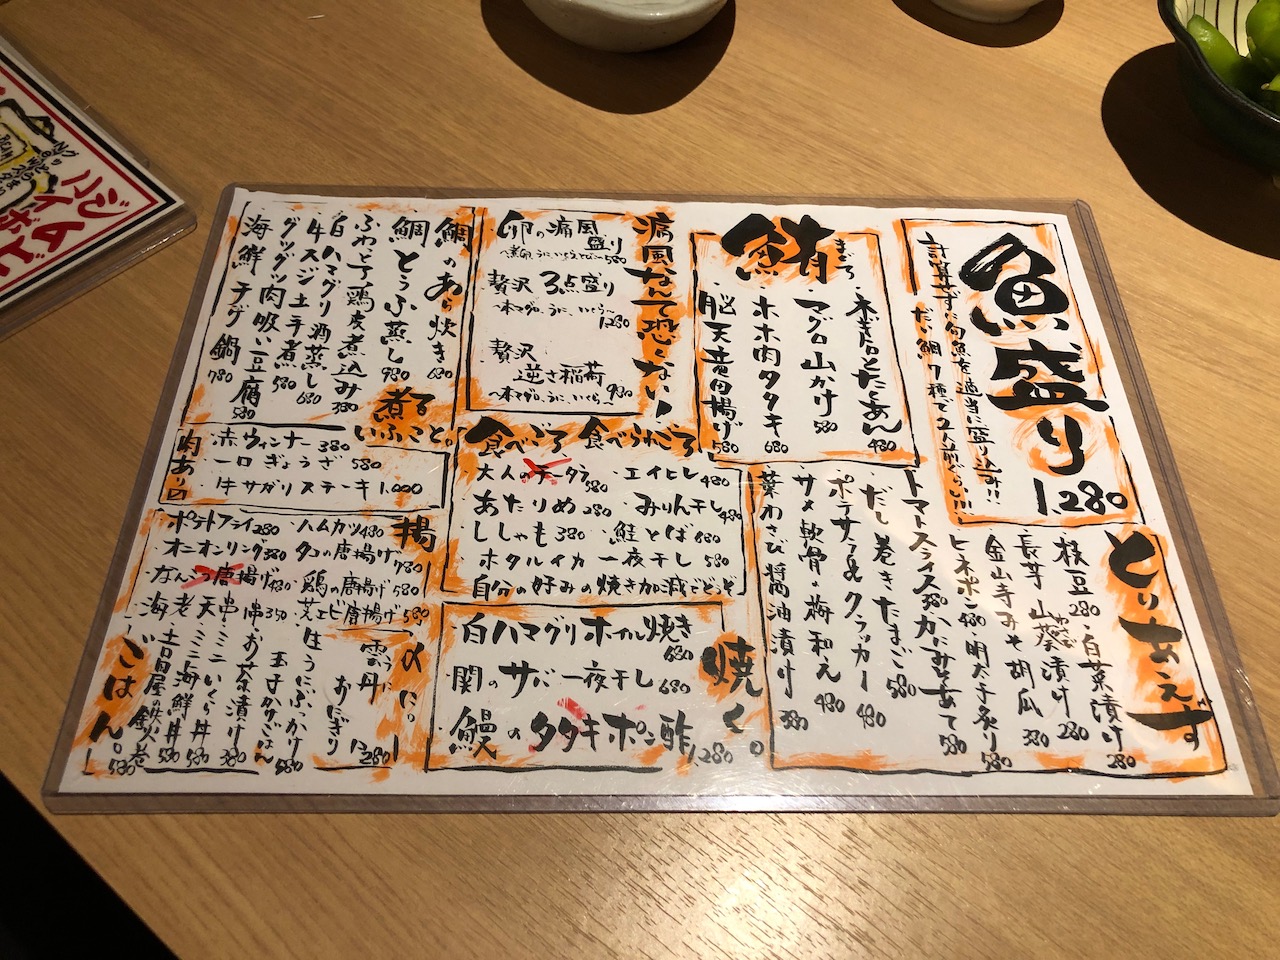 魚盛り 1,280
計算せずに旬魚を適当に盛り込み!!
だいたい 7種で2人前ぐらい!!!
とりあえず
枝豆 280
白菜漬け 280
長芋 山葵漬け 280
わさび
金山寺みそ胡瓜 380
ヒネポン 480
明太子炙り 580
トマトスライス 380
かにみそあて 580
だし巻きたまご 580
ポテサラ&クラッカー 480
サメ軟骨の梅和え 480
葉わさび醤油漬け 380
鮪
まぐろ
本まぐろとたくあん 480
マグロ山かけ 580
ホホ肉タタキ 680
脳天竜田揚げ 580
痛風なんて恐くない!
卵の痛風盛り 580
贅沢 3点盛り
〜本マグロ、うに、いくら〜
1,280
贅沢
逆さ稲荷 980
〜本マグロ、うに、いくら〜
食べごろ 食べられごろ
大人のチータラ 580
エイヒレ 480
あたりめ 280
みりん干し 480
ししゃも 380
鮭とば 680
ホタルイカ一夜干し 580
自分の好みの焼き加減でどうぞ
焼く。
白ハマグリホイル焼き 680
関のサバ一夜干し 680
鰻のタタキポン酢 1,280
煮るいふこと。
鯛のあら炊き 680
鯛とうふ蒸し 980
ふわとろ鶏皮煮込み 380
白ハマグリ酒蒸し 680
牛スジ土手煮 580
グツグツ肉吸い豆腐 580
海鮮チゲ鍋 780
肉あり〼
赤ウィンナー 380
一口ぎょうざ 580
牛サガリステーキ 1,000
揚
ポテトフライ 280
ハムカツ 480
オニオンリング 380
タコの唐揚げ 780
なんこつ唐揚げ 480
鶏の唐揚げ 580
海老天串 1串350
芝エビ唐揚げ 580
〆に。
ごはん。
雲丹おにぎり 1,280
生うにぶっかけ玉子かけごはん 980
お茶漬け 380
ミニいくら丼 580
ミニ海鮮丼 580